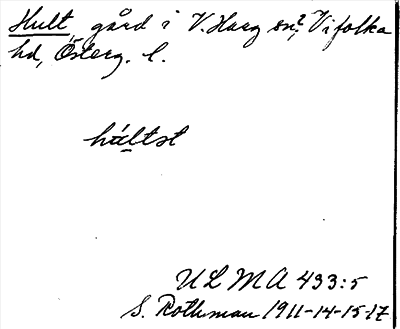 Hult, gård i V. Harg sn?, Vifolka
hd, Österg. l.
háltst
ULMA 433:5
S. Rothman 1911-14-15-17